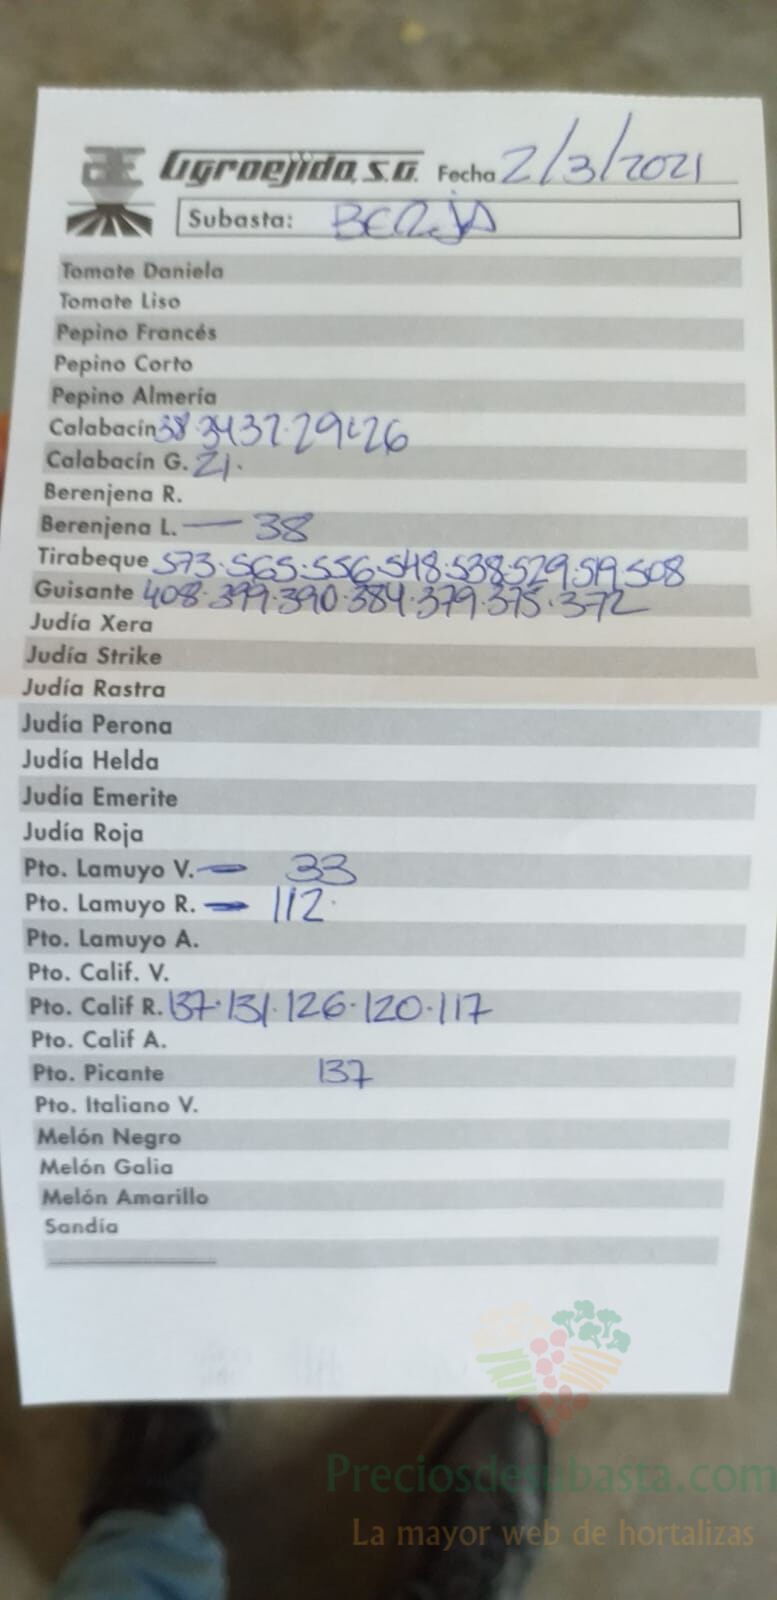 Agroejido, S.A. Fecha 2/3/2021
Subasta: BERJA
Tomate Daniela
Tomate Liso
Pepino Francés
Pepino Corto
Pepino Almería
Calabacín 38·34 32·29·26
Calabacín G. 21·
Berenjena R.
Berenjena L. — 38
Tirabeque 573·565·556·548·538·529·519·508
Guisante 408·399·390·384·379·375·372
Judía Xera
Judía Strike
Judía Rastra
Judía Perona
Judía Helda
Judía Emerite
Judía Roja
Pto. Lamuyo V. — 33
Pto. Lamuyo R. — 112·
Pto. Lamuyo A.
Pto. Calif. V.
Pto. Calif R. 137·131·126·120·117
Pto. Calif A.
Pto. Picante 137
Pto. Italiano V.
Melón Negro
Melón Galia
Melón Amarillo
Sandía
Preciosdesubasta.com
La mayor web de hortalizas